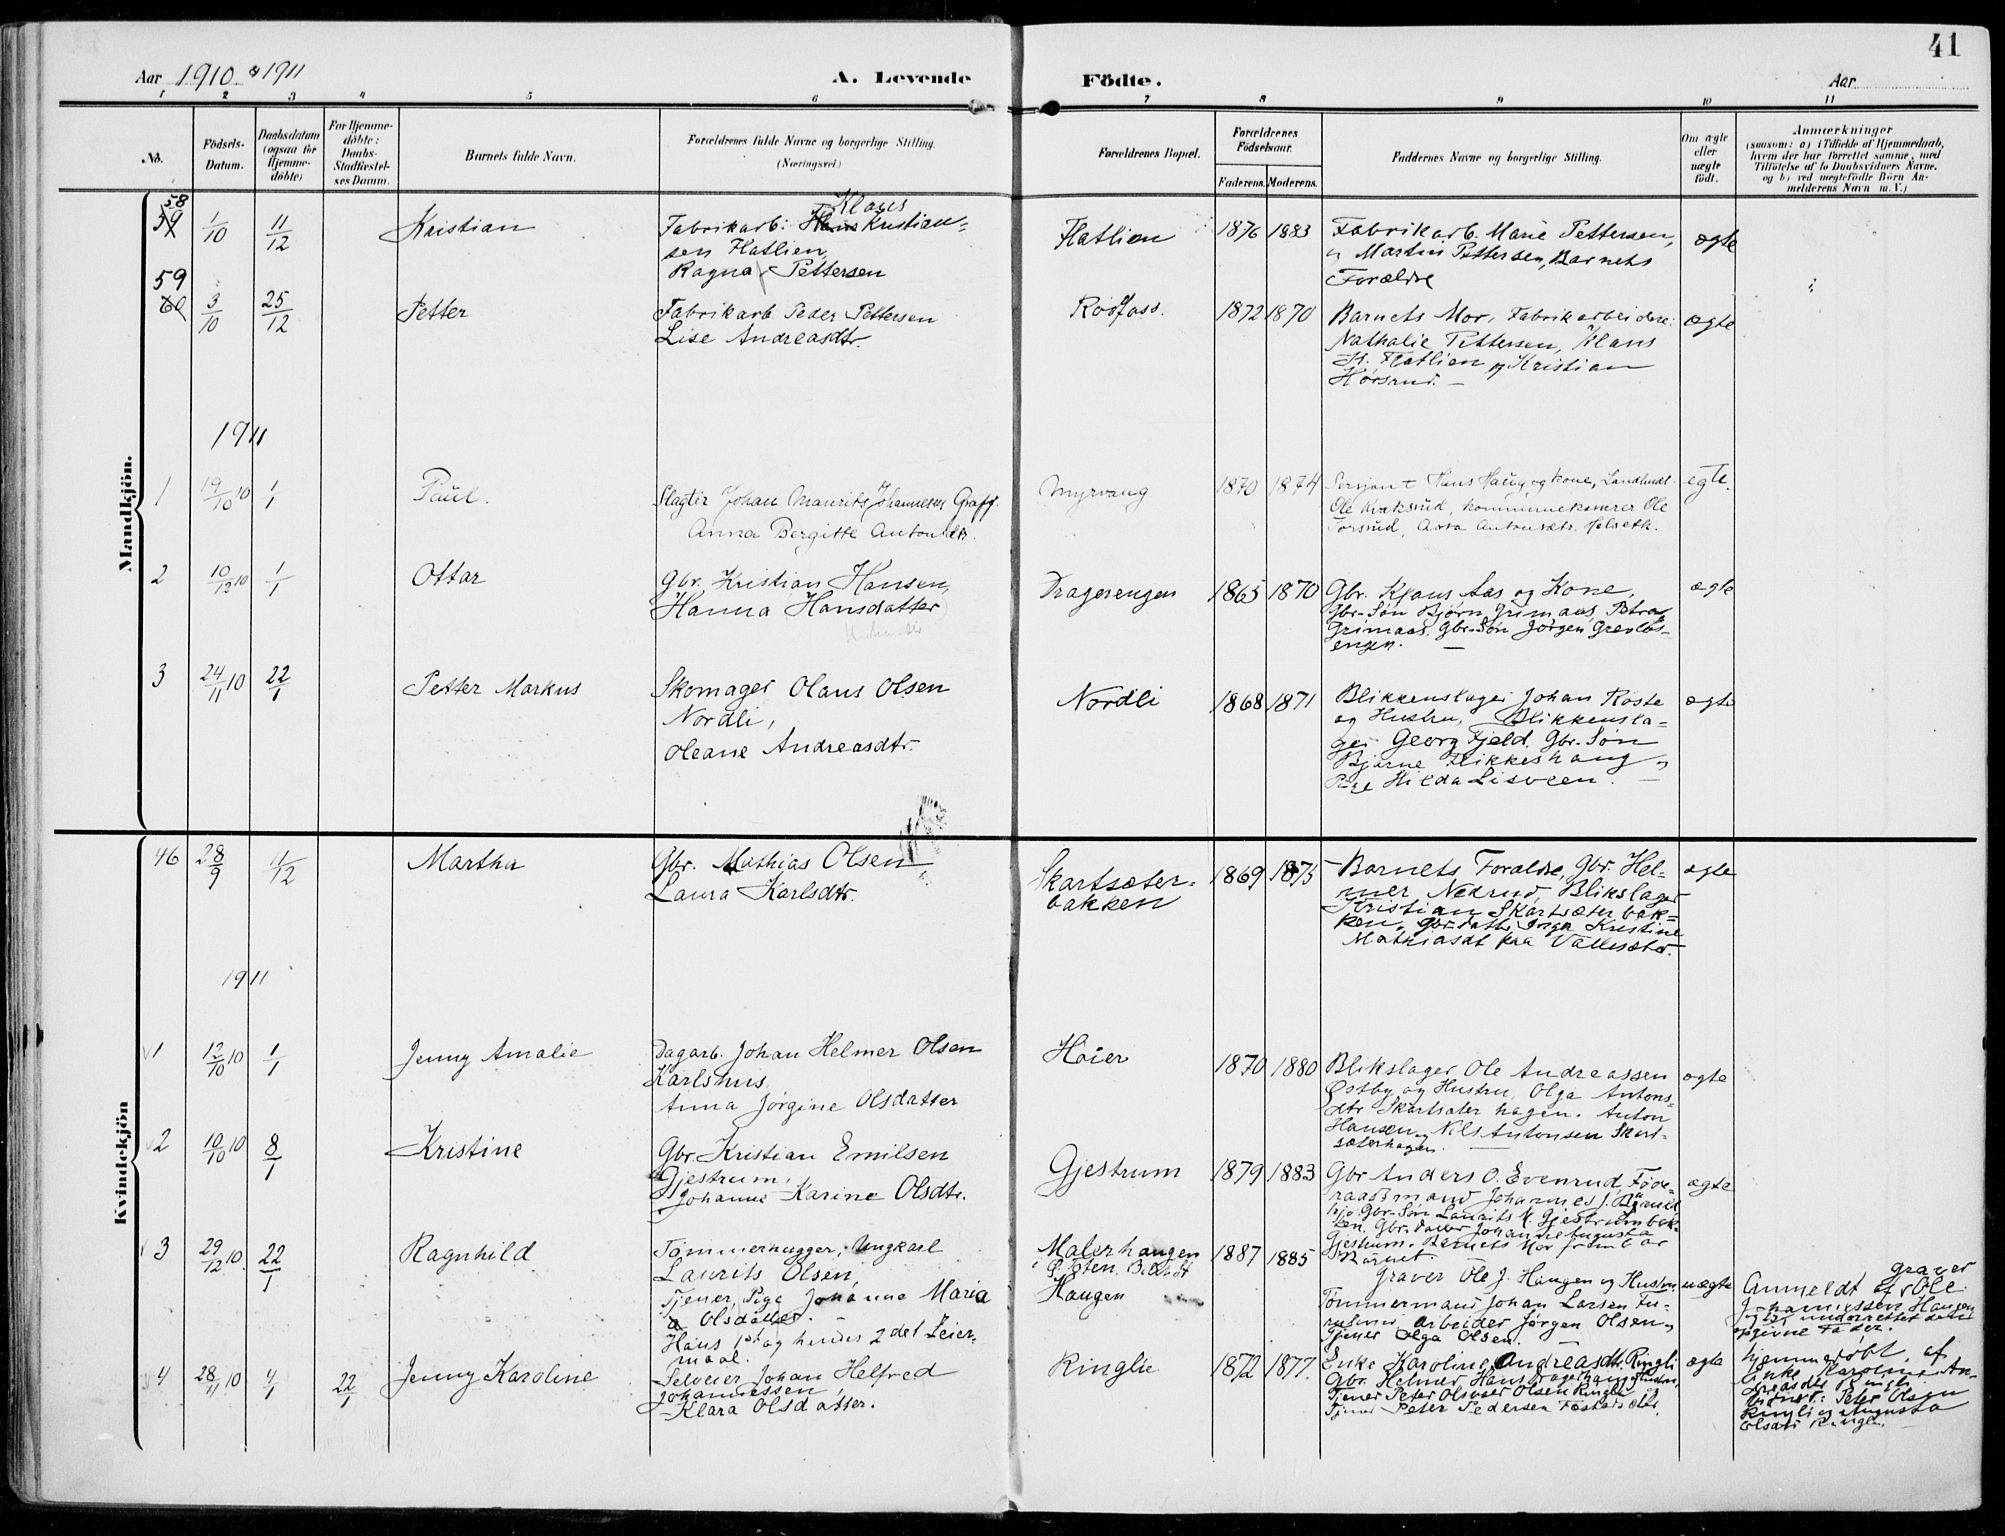 41
Aar 1910 & 1911
A. Levende Födte.
Aar
1 2 3 4 5 6 7 8 9 10 11
No.
Födsels-Datum.
Daabsdatum (ogsaa for Hjemme-döbte)
For Hjemme-döbte: Daabs-Stadfæstel-ses Datum.
Barnets fulde Navn.
Forældrenes fulde Navne og borgerlige Stilling. (Næringsvei)
Forældrenes Bopæl.
Forældrenes Födselsaar.
Faderens. Moderens.
Faddernes Navne og borgerlige Stilling.
Om ægte eller uægte födt.
Anmærkninger
(saasom: a) i Tilfælde af Hjemmedaab, hvem der har forrettet samme, med Tilföielse af to Daabsvidners Navne, og b) ved uægtefödte Börn An-melderens Navn m. V.)
Mandkjön.
58
59 1/10 11/12 Kristian
Klaus
Fabrikarb. Hans Kristian-
sen Hatlien,
Ragna Pettersen
Hatlien 1876 1883
Fabrikarb. Marie Pettersen,
og Martin Pettersen, Barnets
Forældre
ægte
59
60 3/10 25/12 Petter
Fabrikarb. Peder Pettersen
Lise Andreasdtr.
Rodfoss. 1872 1870
Barnets Mor, Fabrikarbeidere:
Nathalie Pettersen, Klaus
K. Hatlien og Kristian
Hørsrud. —
ægte
1911
1 19/10 10 1/1 Paul.
Slagter Johan Maurits Johannesen Graff.
Anna Bergitte Antonsdtr.
Myrvang 1870 1874
Sersjant Hans Haug og kone, Landhndl.
Ole Kraksrud, kommunekasserer Ole
Forsrud, Asta Antonsdtr. Melseth.
egte.
2 10/12 10 1/1 Ottar
Gbr. Kristian Hansen,
Hanna Hansdatter
Dragerengen 1865 1870
Gbr. Klaus Aas og Kone,
Gbr-Søn Bjørn Grimaas, Petra
Grimaas, Gbr-Søn Jørgen Grevlos-
engen. —
ægte
3 24/11 10 22/1 Petter Markus
Skomager Olaus Olsen
Nordli,
Oleane Andreasdtr.
Nordli 1868 1871
Blikkenslager Johan Roste
og Hustru, Blikkensla-
ger Georg Fjeld, Gbr-Søn
Bjarne Flikkeshaug,
Pige Hilda Lisveen. —
ægte
Kvindekjön
46 28/9 11/12 Martha
Gbr. Mathias Olsen
Laura Karlsdtr.
Skartsæter-
bakken 1869 1875
Barnets Forældre, Gbr. Hel-
mer Nedrud, Blikslager
Kristian Skartsæterbak-
ken, Gbr-datter Inga Kristine
Mathiasdt paa Vallesæter.
ægte
1911
1 12/10 10 1/1 Jenny Amalie
Dagarb. Johan Helmer Olsen
Karlshus,
Anna Jørgine Olsdatter
Høier 1870 1880
Blikslager Ole Andreassen
Østby og Hustru, Olga Antons-
dtr Skartsæterhagen. Anton
Hansen og Nils Antonsen Skart-
sæterhagen.
ægte
2 10/10 10 8/1 Kristine
Gbr. Kristian Emilsen
Gjestrum,
Johanne Karine Olsdtr.
Gjestrum 1879 1883
Gbr Anders O. Evenrud, Føde-
raadsmand Johannes J.
Gbr-Søn Laurits K. Gjestrumbak-
ken. Gbr. datter Johandre Augusta
Gjestrum. Barnets Mor frambar
Barnet
ægte
3 29/12 10 22/1 Ragnhild
Tømmerhugger, Ungkarl
Laurits Olsen,
Tjener, Pige Johanne Maria
Olsdatter.
Hans 1ste og hendes 2det Leier-
maal.
Malerhaugen
Ø. Toten
Haugen 1887 1885
Graver Ole J. Haugen og Hustru
Tømmermand Johan Larsen Fu-
rulund, Arbeider Jørgen Olsen,
Tjener Olga Olsen. —
uægte
Graver
Anmeldt af Ole
Johannessen Haugen
og underrettet den
opgivne Fader.
4 28/11 10 4/1 22/1 Jenny Karoline
Selveier Johan Helfred
Johannessen,
Klara Olsdatter.
Ringlie 1872 1877.
Enke Karoline Andreasdtr. Ringli
Gbr. Helmer Hans Dragerhaug og Hustru,
Tjener Peter Olsen Ringli og
Tjener Peter Pedersen
ægte
hjemmedøbt af
Enke Karoline An-
dreasdtr Ringli
Vidner: Peter Olsen
Ringli og Augusta
Olsdtr Ringli.